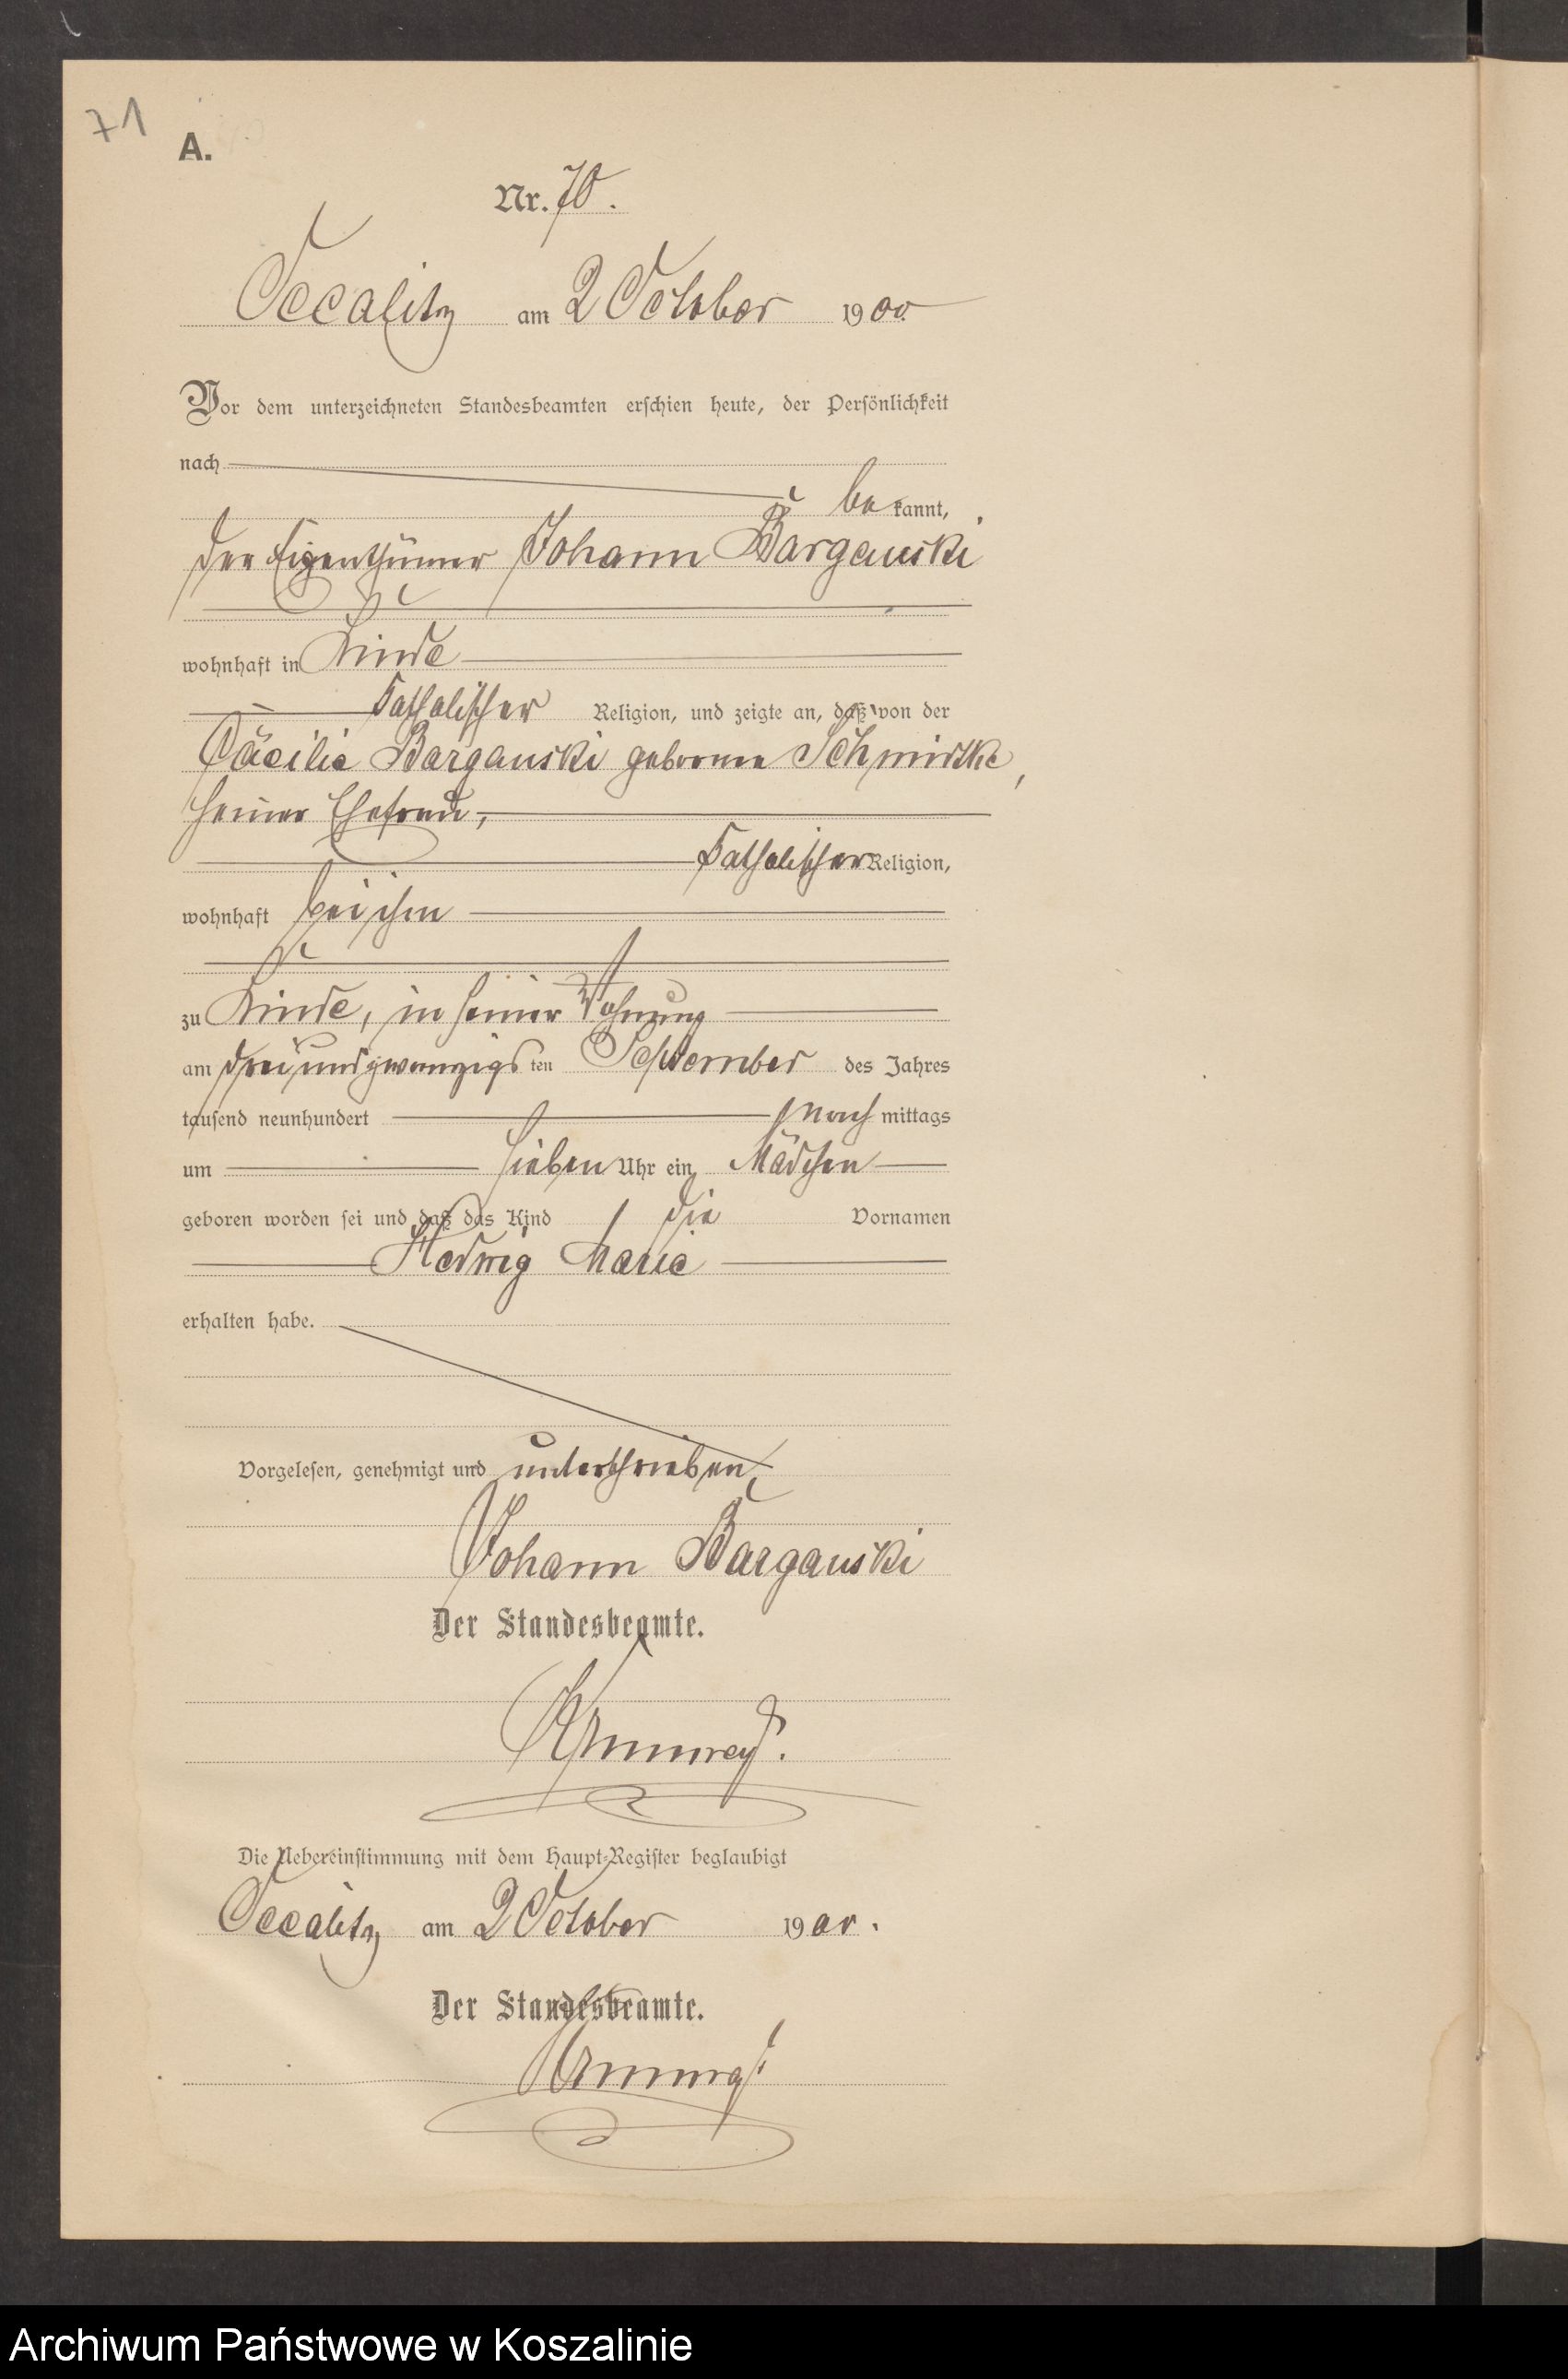 71
A.
Nr. 70.
Occalitz am 2 October 1900
Vor dem unterzeichneten Standesbeamten erschien heute, der Persönlichkeit
nach
bekannt,
der Eigenthümer Johann Barganski
wohnhaft in Linde
katholischer Religion, und zeigte an, daß von der
Cäcilie Barganski geborenen Schmidtke,
seiner Ehefrau,
katholischer Religion,
wohnhaft bei ihm
zu Linde, in seiner Wohnung
am dreiundzwanzigsten September des Jahres
tausend neunhundert nachmittags
um sieben Uhr ein Mädchen
geboren worden sei und daß das Kind die Vornamen
Hedwig Marie
erhalten habe.
Vorgelesen, genehmigt und unterschrieben
Johann Barganski
Der Standesbeamte.
Die Uebereinstimmung mit dem Haupt-Register beglaubigt
Occalitz am 2 October 1900.
Der Standesbeamte.
Archiwum Państwowe w Koszalinie